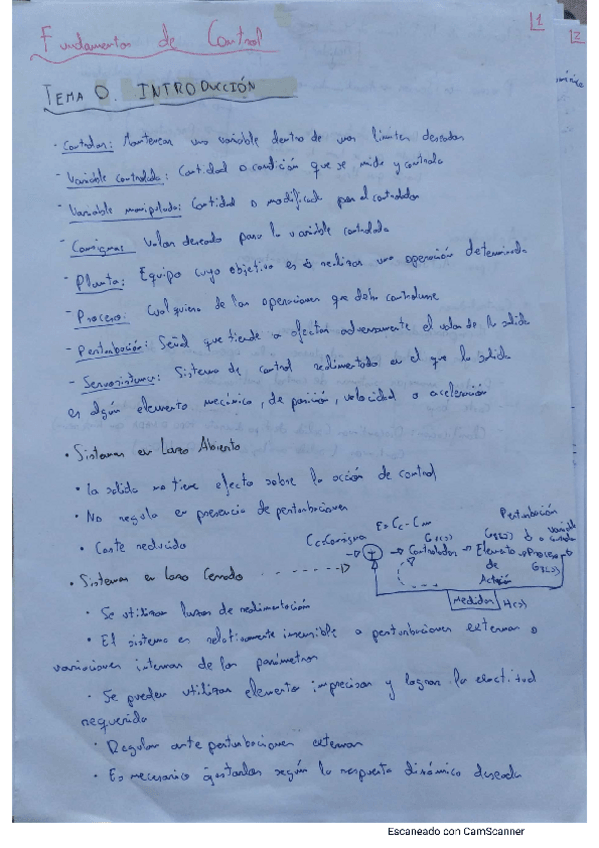 1
2
Fundamentos de Control
TEMA 0. INTRODUCCIÓN
- Controlar: Mantener una variable dentro de unos límites deseados
- Variable controlada: Cantidad o condición que se mide y controla
- Variable manipulada: Cantidad o modificada por el controlador
- Consigna: Valor deseado para la variable controlada
- Planta: Equipo cuyo objetivo es realizar una operación determinada
- Proceso: Cualquiera de las operaciones que debe controlarse
- Perturbación: Señal que tiende a afectar adversamente el valor de la salida
- Servosistema: Sistema de control realimentado en el que la salida
es algún elemento mecánico, de posición, velocidad o aceleración
• Sistemas en Lazo Abierto
• La salida no tiene efecto sobre la acción de control
• No regula en presencia de perturbaciones
• Coste reducido
• Sistemas en Lazo Cerrado
Perturbación
Cc=Consigna
E=Cc-Cm
G1(s)
G2(s)
variable
Controlador
Elemento
de
Proceso
G3(s)
Medidor
H(s)
• Se utilizan lazos de realimentación
• El sistema es relativamente insensible a perturbaciones externas o
variaciones internas de los parámetros
• Se pueden utilizar elementos imprecisos y lograr la exactitud
requerida
• Regulan ante perturbaciones externas
• Es necesario ajustarlos según la respuesta dinámica deseada
Escaneado con CamScanner